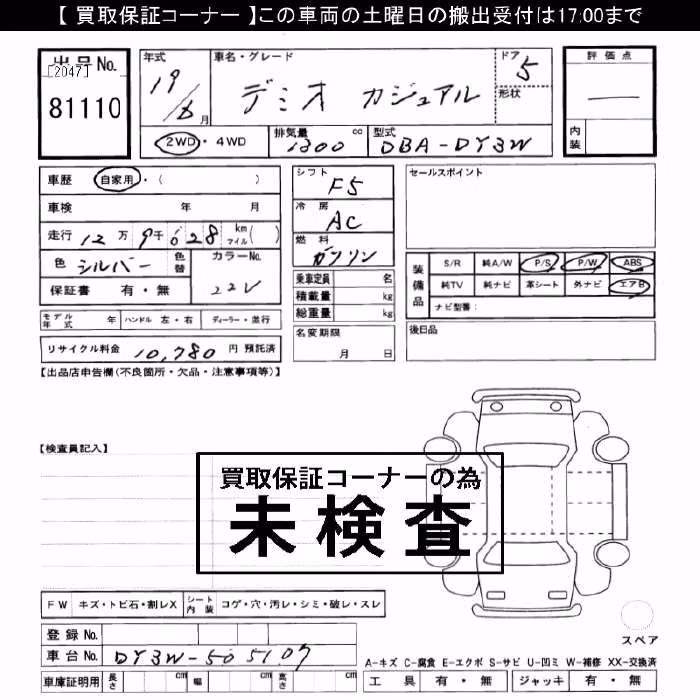 【 買取保証コーナー 】この車両の土曜日の搬出受付は17:00まで
出品No.
[2047]
81110
年式 19/6月
車名・グレード デミオ カジュアル
ドア 5
形状
2WD・4WD
排気量 1300 cc
型式 DBA-DY3W
評価点
―
内装
車歴 自家用・( )
車検 年 月
走行 12万9千628 km マイル( )
色 シルバー 色替
カラーNo. 22V
保証書 有・無
シフト F5
冷房 AC
燃料 ガソリン
乗車定員 名
積載量 kg
総重量 kg
名変期限 月 日
セールスポイント
装備品
S/R 純A/W P/S P/W ABS
純TV 純ナビ 革シート 外ナビ エアB
ナビ型番:
後日品
モデル年式 年 ハンドル 左・右 ディーラー・並行
リサイクル料金 10,780 円 預託済
【出品店申告欄(不良箇所・欠品・注意事項等)】
【検査員記入】
買取保証コーナーの為
未検査
FW キズ・トビ石・割レX シート内装 コゲ・穴・汚レ・シミ・破レ・スレ
登録No.
車台No. DY3W-505107
車庫証明用 長さ cm 幅 cm 高さ cm
スペア
A-キズ C-腐食 E-エクボ S-サビ U-凹ミ W-補修 XX-交換済
工具 有・無 ジャッキ 有・無